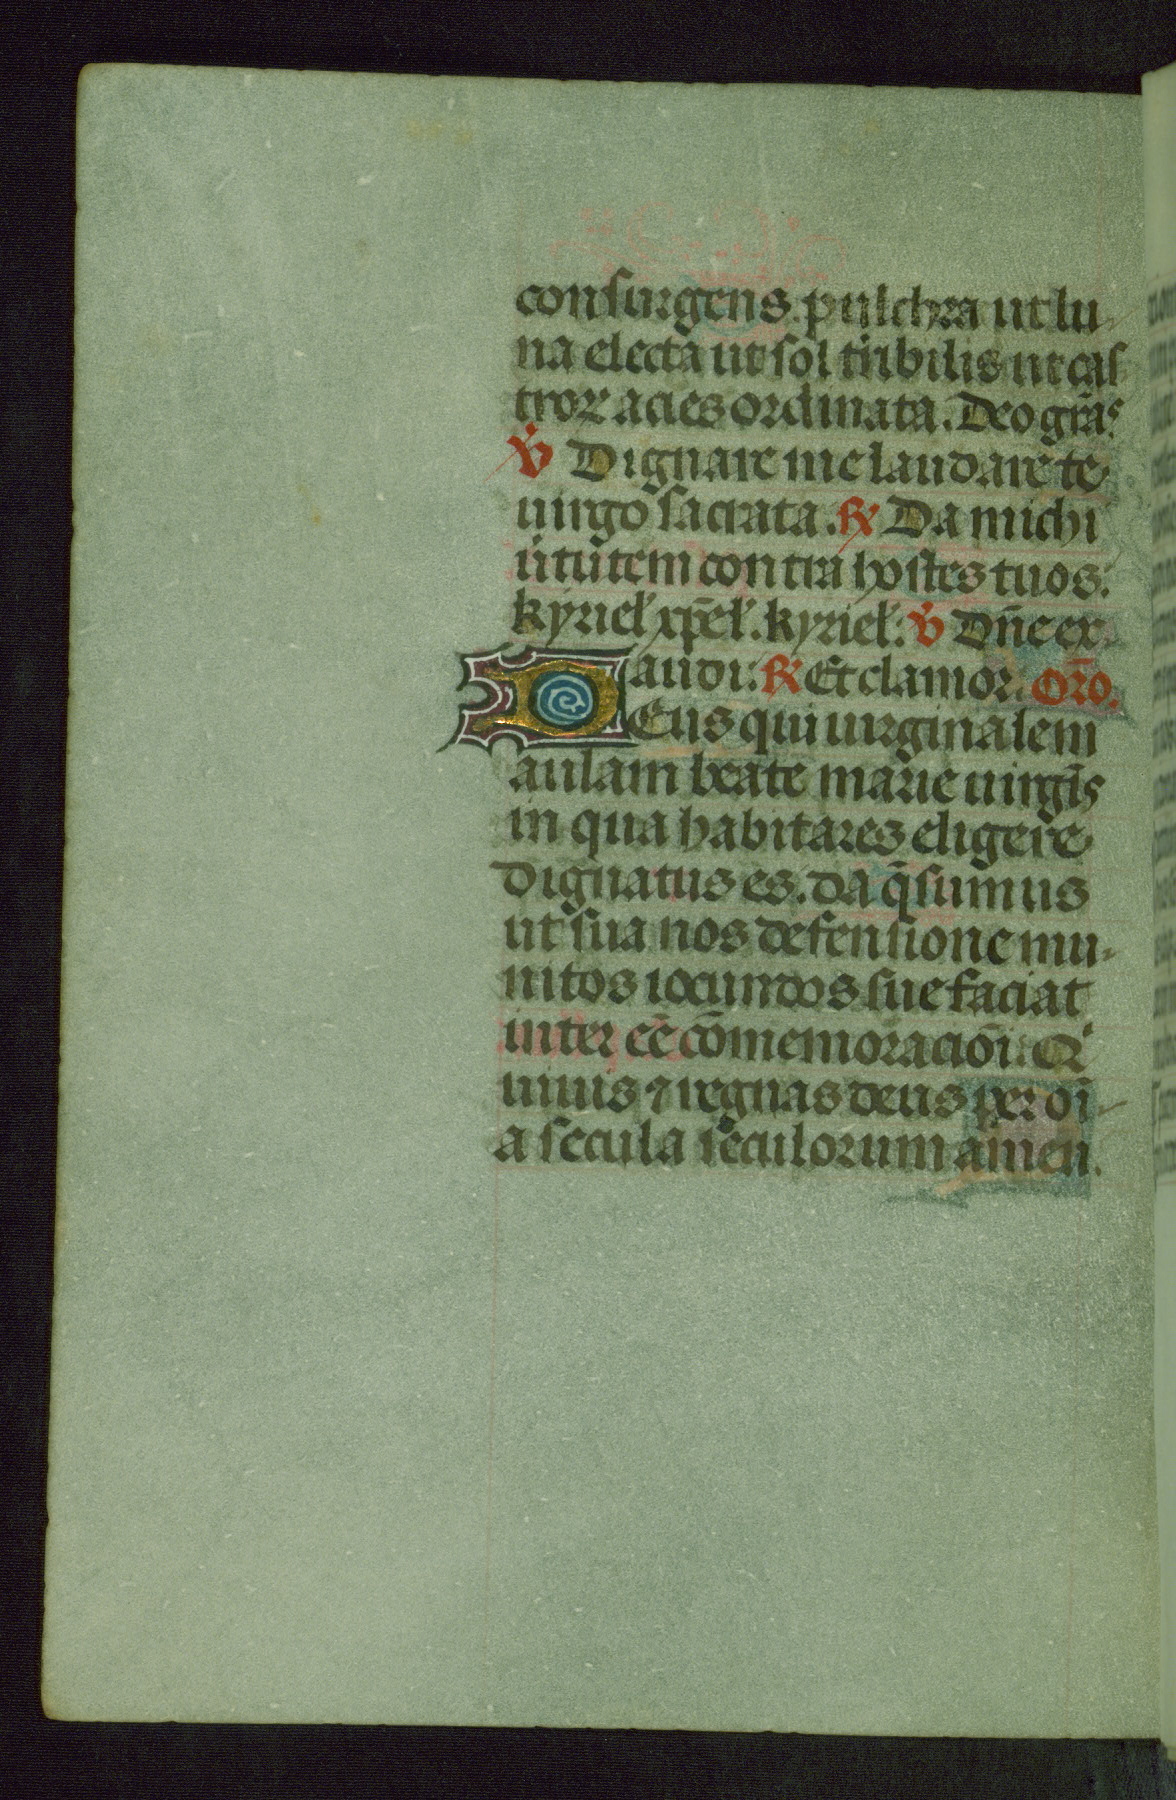 consurgens. pulchra ut lu-
na electa ut sol t̾ribilis ut cas
troꝝ acies ordinata. Deo gr̃as.
℣ Dignare me laudare te
uirgo sacrata. ℟ Da michi
u̾tutem contra hostes tuos.
kyriel̾ xp̃el̾. kyriel̾: ℣ Dñe ex
audi: ℟ Et clamor. Or̃o.
DEus qui uirginalem
aulam beate marie uirgĩs
in qua habitares eligere
dignatus es. da q̃sumus
ut sua nos defensione mu-
nitos iocundos sue faciat
inter eẽ cõmemoraciõi. Q̾
uiuis ⁊ regnas deus per oĩ-
a secula seculorum amen.